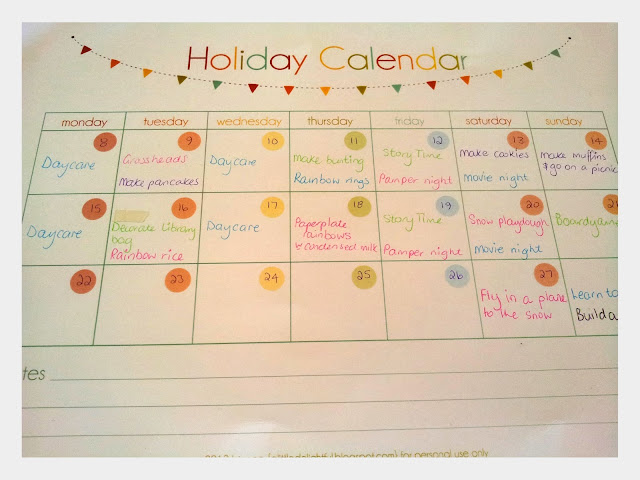 Holiday Calendar
monday tuesday wednesday thursday friday saturday sunday
8 9 10 11 12 13 14
Daycare
Grassheads
Make pancakes
Daycare
Make bunting
Rainbow rings
Story Time
Pamper night
Make cookies
Movie night
Make muffins
& go on a picnic
15 16 17 18 19 20
Daycare
Decorate Library
bag
Rainbow rice
Daycare
Paperplate
rainbows
& condensed milk
Story Time
Pamper night
Snow playdough
Movie night
22 23 24 25 26 27
Fly in a plane
to the snow
Learn to
Build a
tes
for personal use only